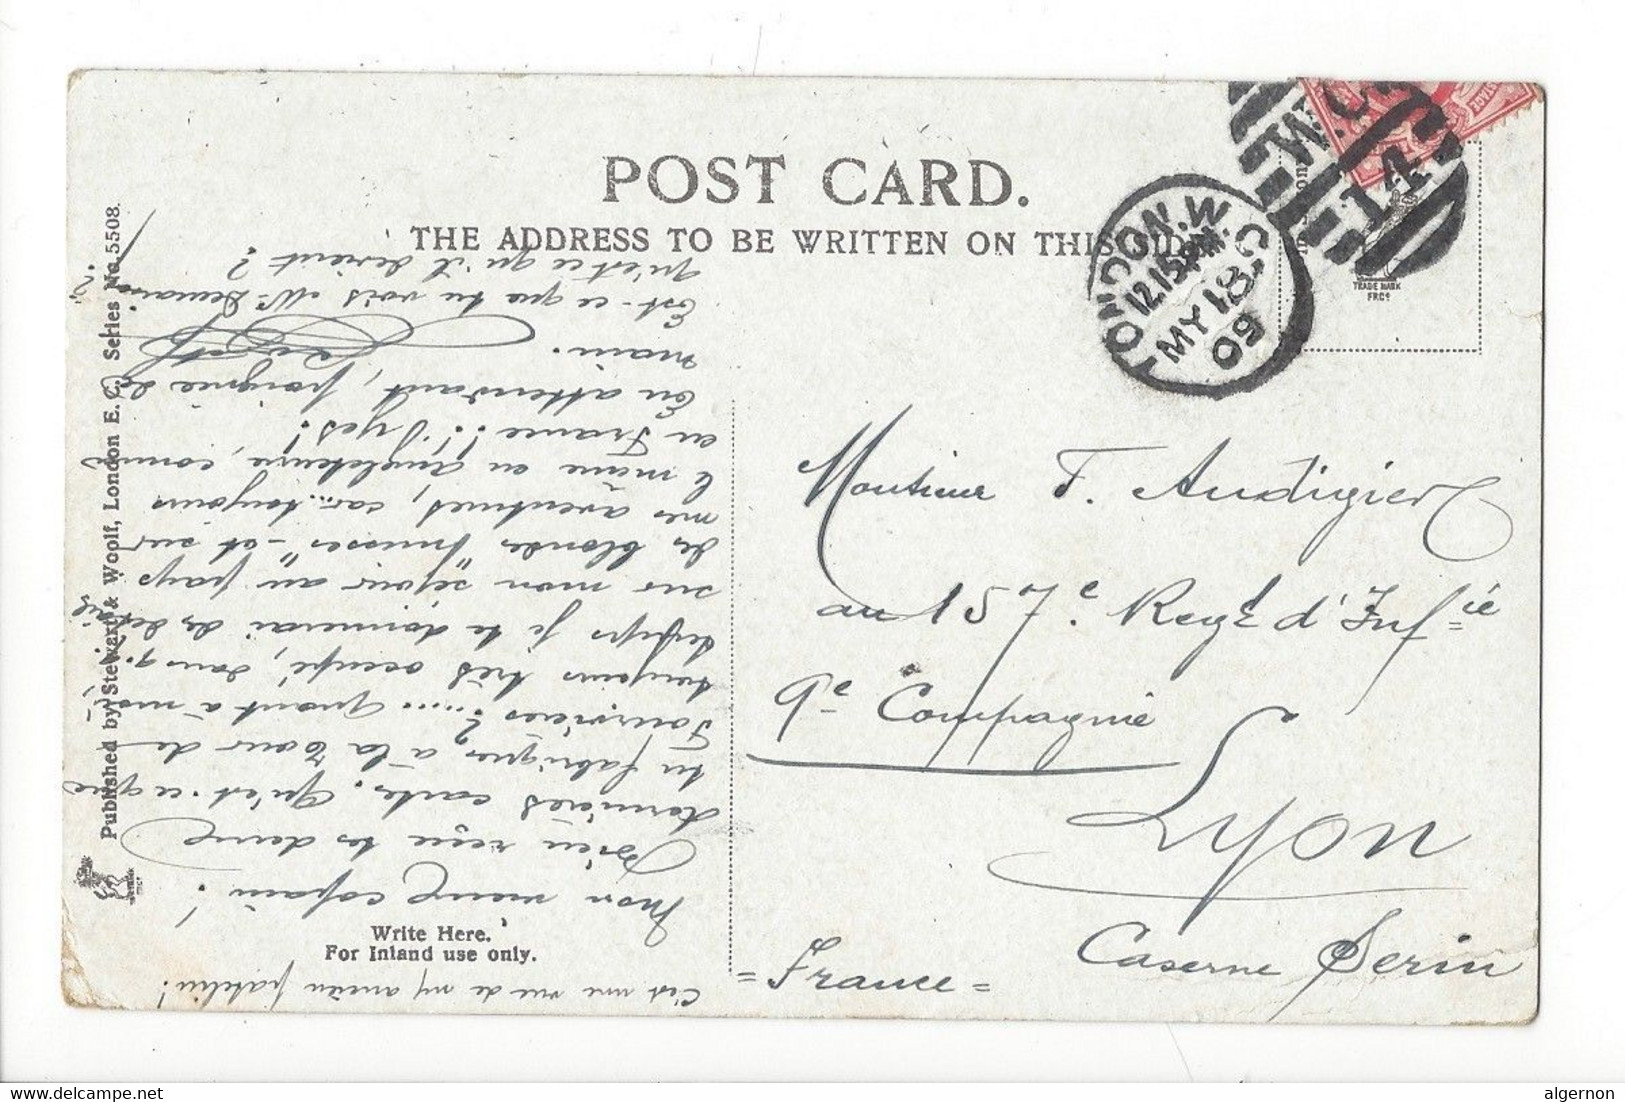 POST CARD.
THE ADDRESS TO BE WRITTEN ON THIS SIDE.
LONDON.W.C
12.15PM
MY 18
09
W.C
14
POSTAGE
TRADE MARK
FRCº
Monsieur F. Audigier
au 157e. Regt d'Infie
9e Compagnie
Lyon
Caserne Serin
= France =
Published by Stewart & Woolf, London E.C. Series No. 5508.
Write Here.
For Inland use only.
Mon vieux copain!
Bien reçu tes deux
dernières cartes. Qu'est-ce que
tu fabriques à la Tour de
Fourvières?..... Quant à moi,
toujours très occupé, dans q.
temps je te donnerai des détails
sur mon séjour au "pays
des blondes "misses" - et sur
mes aventures, car... toujours
le même en Angleterre, comme
en France!! I yes!
En attendant, poignée de
main.
Est-ce que tu vois Mr Demain?
Qu'est ce qu'il devient?
C'est une vue de my ancien patelin!
algernon